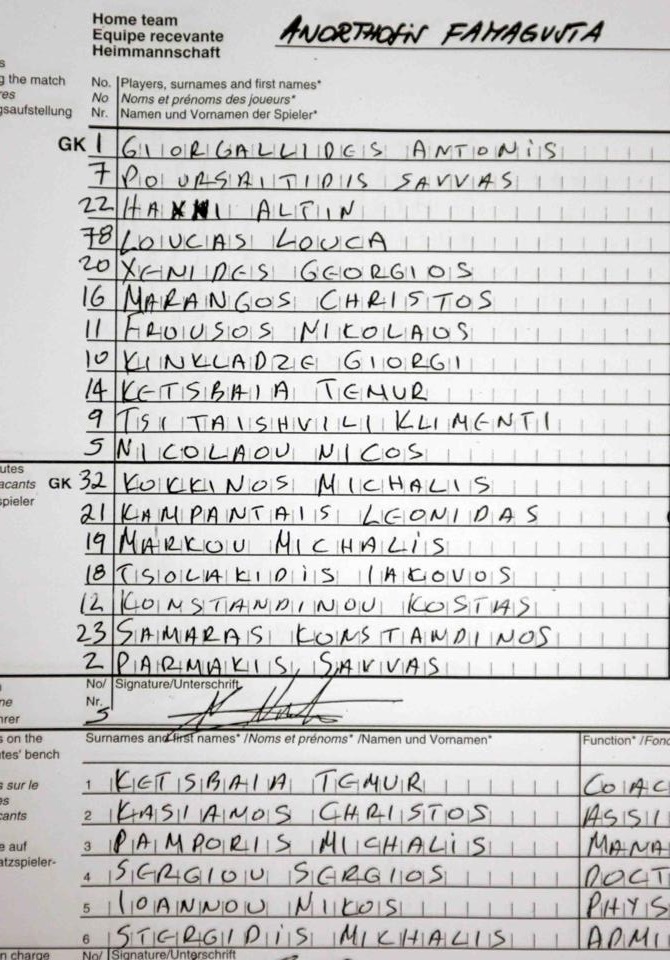 Home team
Equipe recevante
Heimmannschaft
ANORTHOSIS FAMAGUSTA
g the match
No. Players, surnames and first names*
No Noms et prénoms des joueurs*
Nr. Namen und Vornamen der Spieler*
gsaufstellung
GK 1 GIORGALLIDES ANTONIS
7 POURSAITIDIS SAVVAS
22 HAXHI ALTIN
78 LOUCAS LOUCA
20 XENIDES GEORGIOS
16 MARANGOS CHRISTOS
11 FROUSOS NIKOLAOS
10 KINKLADZE GIORGI
14 KETSBAIA TEMUR
9 TSITAISHVILI KLIMENTI
5 NICOLAOU NICOS
utes
acants
spieler
GK 32 KOKKINOS MICHALIS
21 KAMPANTAIS LEONIDAS
19 MARKOU MICHALIS
18 TSOLAKIDIS IAKOVOS
12 KONSTANDINOU KOSTAS
23 SAMARAS KONSTANDINOS
2 PARMAKIS SAVVAS
No/ Signature/Unterschrift
Nr.
5
s on the
utes' bench
Surnames and first names* /Noms et prénoms* /Namen und Vornamen* Function* /Fonc
1 KETSBAIA TEMUR COAC
2 KASIANOS CHRISTOS ASSI
3 PAMPORIS MICHALIS MANA
4 SERGIOU SERGIOS DOCT
5 IOANNOU NIKOS PHYS
6 STERGIDIS MICHALIS ADMI
n charge No/ Signature/Unterschrift